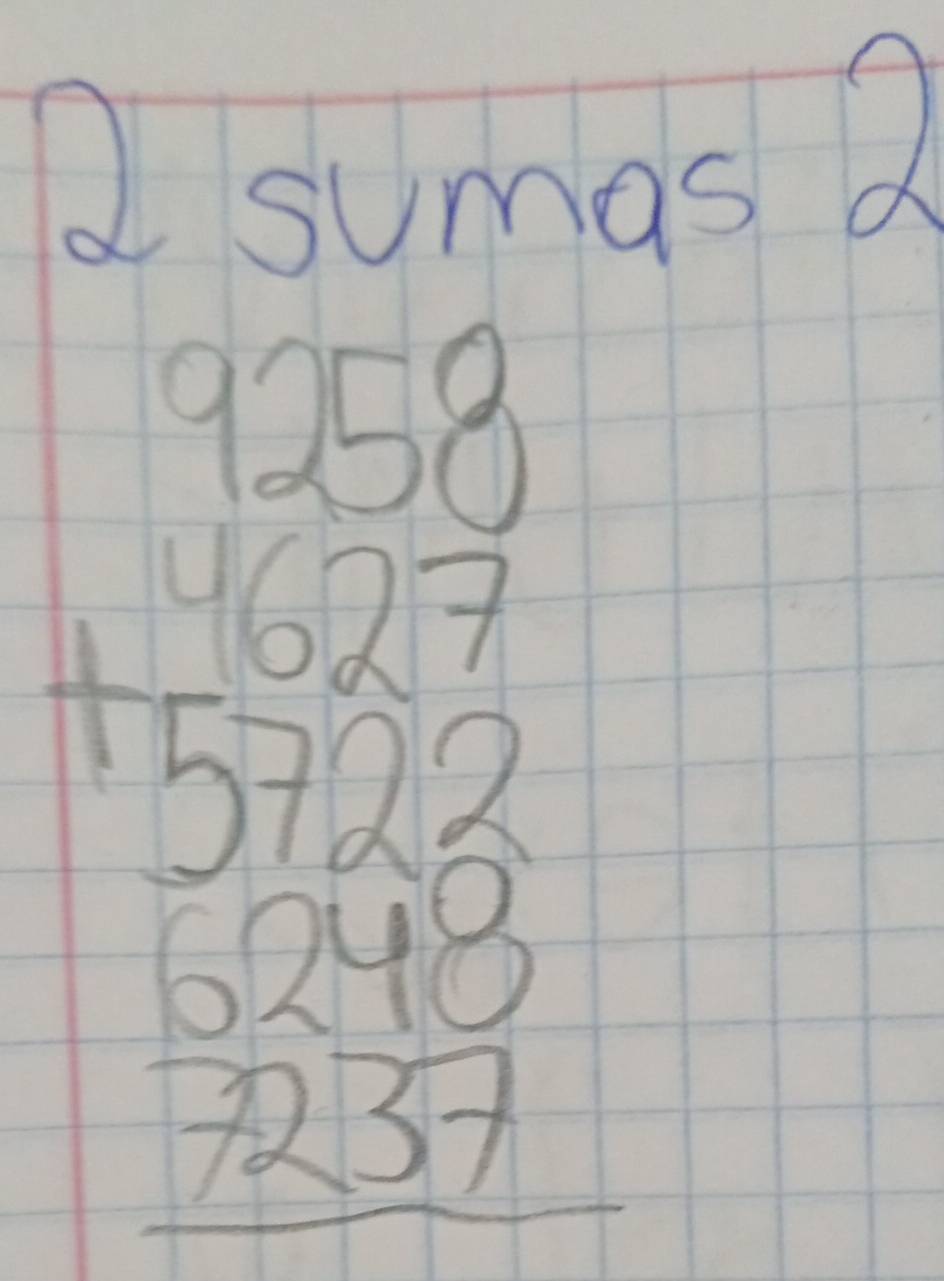 2 sumas 2
9258
4627
+ 5722
6248
7237